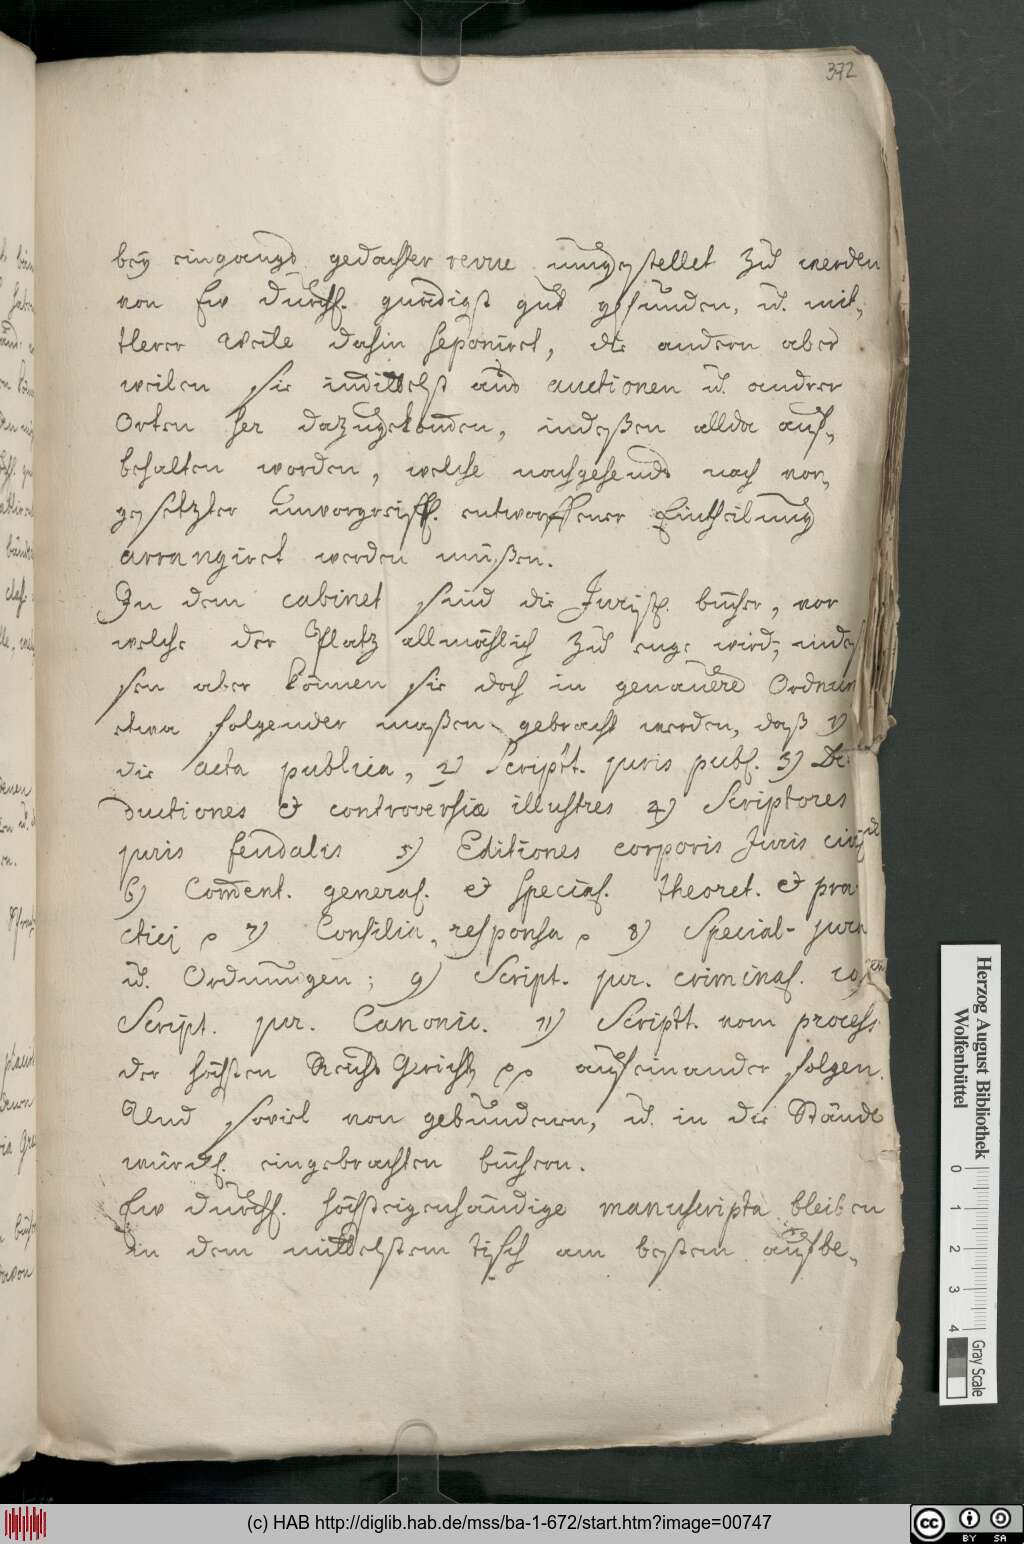 372
bey eingangs gedachter revue umgestellet zu werden
von Ew Durchl. gnädigst gut gefunden, u. mit,
tlerer Weile dahin seponiret, die andern aber
weilen sie indittelst aus auctionen u. andrer
Orten her dazugekomen, indeßen allda auf,
behalten worden, welche nachgehends nach vor,
gesetzter unvorgreiffl. entworffener Eintheilung
arrangiret werden müßen.
In dem cabinet sind die Jurist. bücher, vor
welche der Platz allmählich zu enge wird; indes
sen aber können sie doch in genauere Ordnun
etwa folgender maßen gebracht werden, daß 1)
die acta publica, 2) Scriptt. juris publ. 3) De-
ductiones & controversiæ illustres 4) Scriptores
juris feudalis 5) Editiones corporis Juris civil
6) Coment. general. & special. theoret. & pra
ctici 7) Consilia, responsa 8) Special- jura
u. Ordnungen; 9) Script. jur. criminal. 10)
Script. jur. Canonic. 11) Scriptt. vom process
der höchsten Reichs Gericht auf einander folgen.
Und soviel von gebundenen, u. in die Stände
würckl. eingebrachten büchern.
Ew Durchl. höchsteigenhändige manuscripta bleiben
in dem mittelstem tisch am bestem aufbe,
Herzog August Bibliothek
Wolfenbüttel
0 1 2 3 4
Gray Scale
(c) HAB http://diglib.hab.de/mss/ba-1-672/start.htm?image=00747
cc BY SA